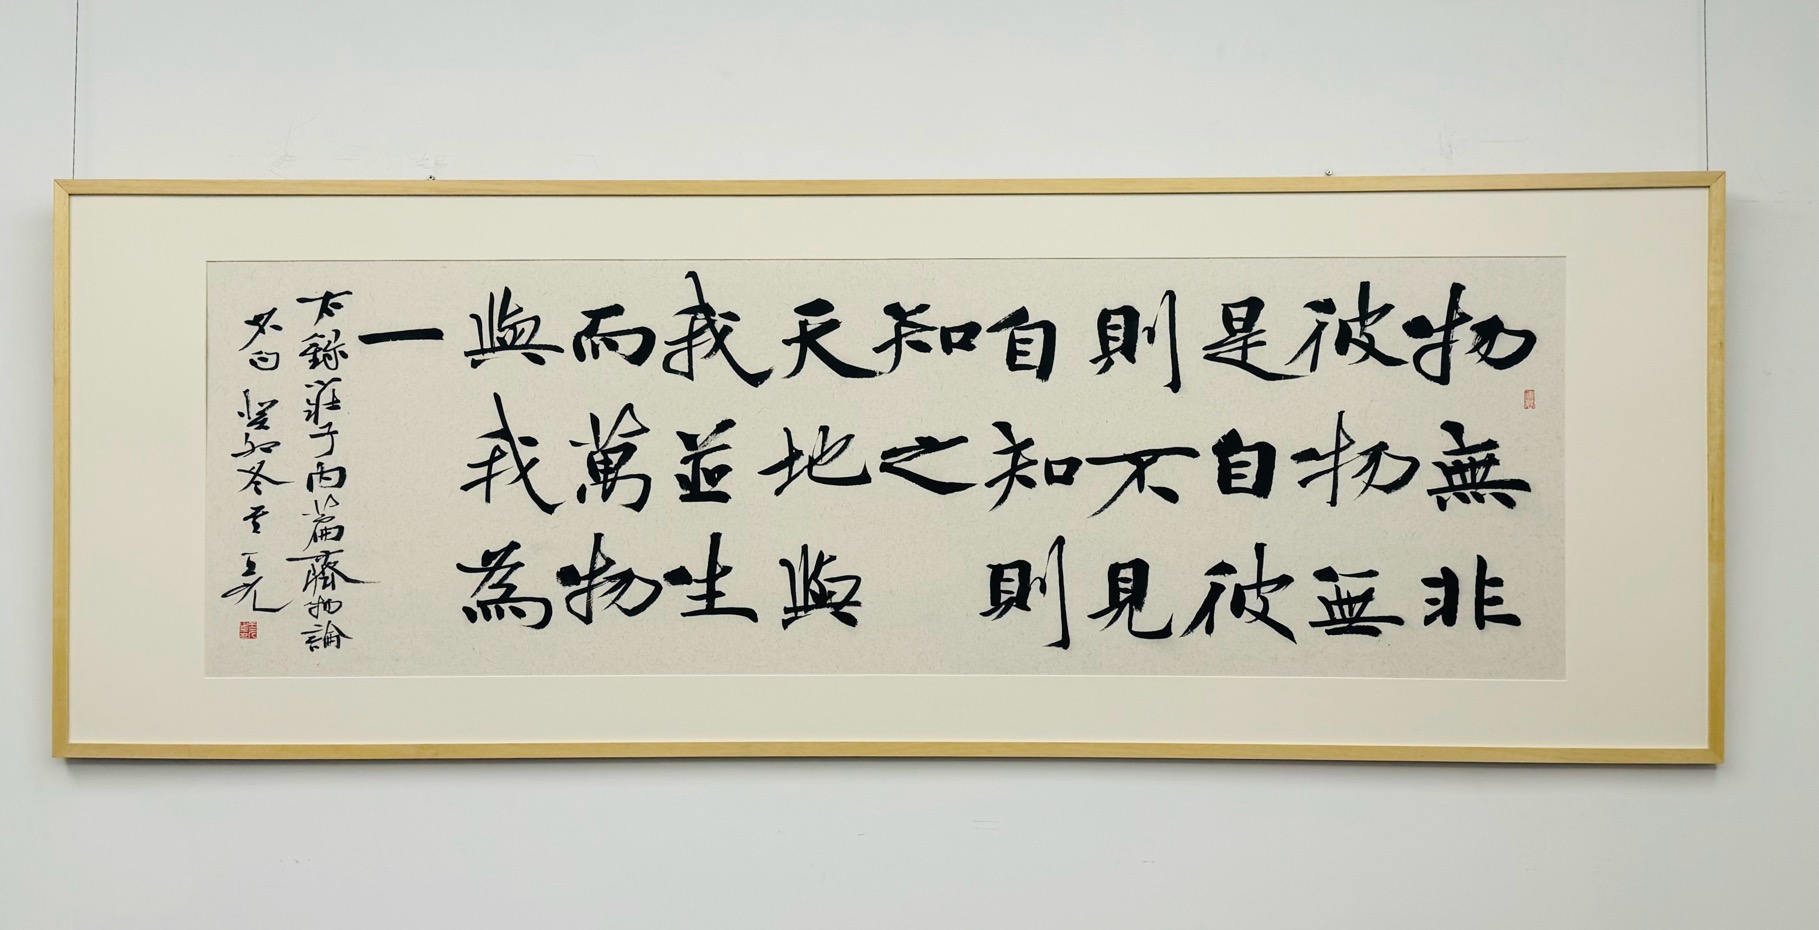 物無非
彼物無
是自彼
則不見
自知則
知之
天地與
我並生
而萬物
與我為
一
右錄莊子內篇齊物論
名句癸卯冬雲